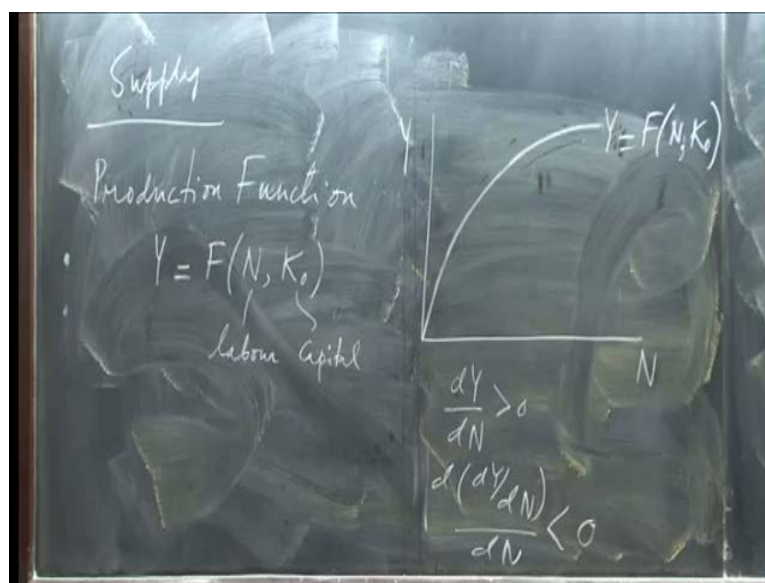 Supply
Production Function
Y = F(N, K₀)
labour capital
Y
Y = F(N, K₀)
N
dY/dN > 0
d(dY/dN)/dN < 0